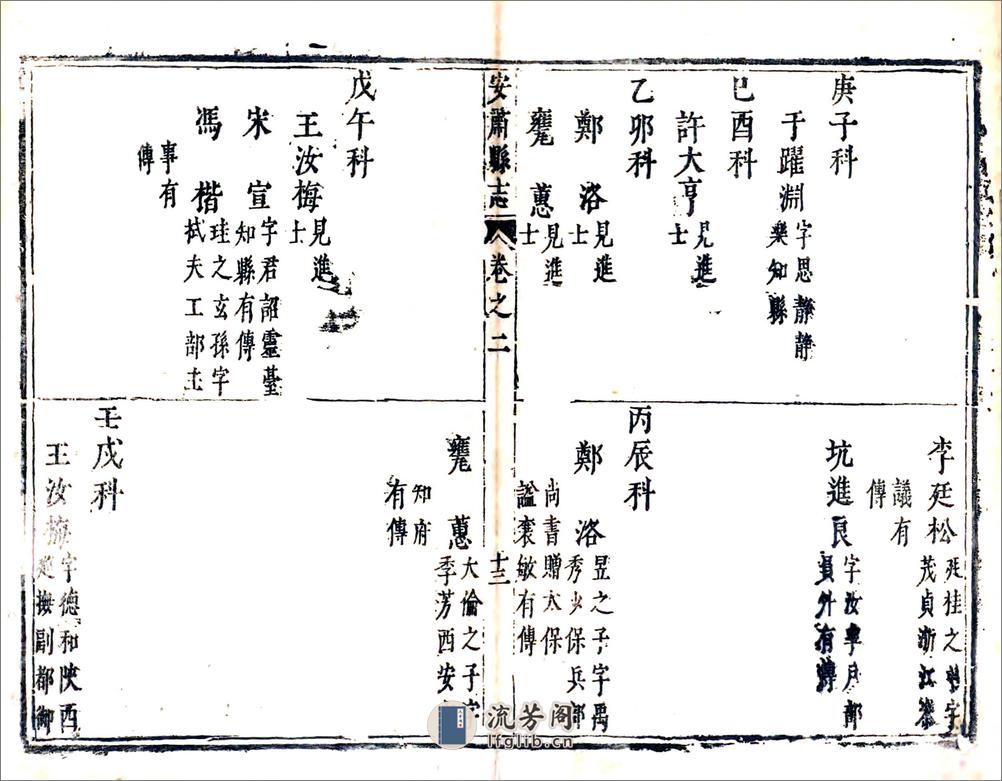 庚子科
于躍淵 字思靜靜
樂知縣
己酉科
許大亨 見進
士
乙卯科
鄭洛 見進
士
蕙 見進
士
李廷松 廷桂之 字
茂貞浙江參
議有
傳
坑進良 字汝 戶部
員外有傳
丙辰科
鄭洛 昱之子字禹
秀少保兵部
尚書贈太保
謚襄敏有傳
安肅縣志 卷之二
十三
戊午科
王汝梅 見進
士
宋宣 字君詔靈臺
知縣有傳
馮楷 珪之玄孫字
拭夫工部主
事有
傳
蕙 大倫之子字
季芳西安
知府
有傳
壬戌科
王汝梅 字德和陝西
巡撫副都御
流芳阁
lfglib.cn